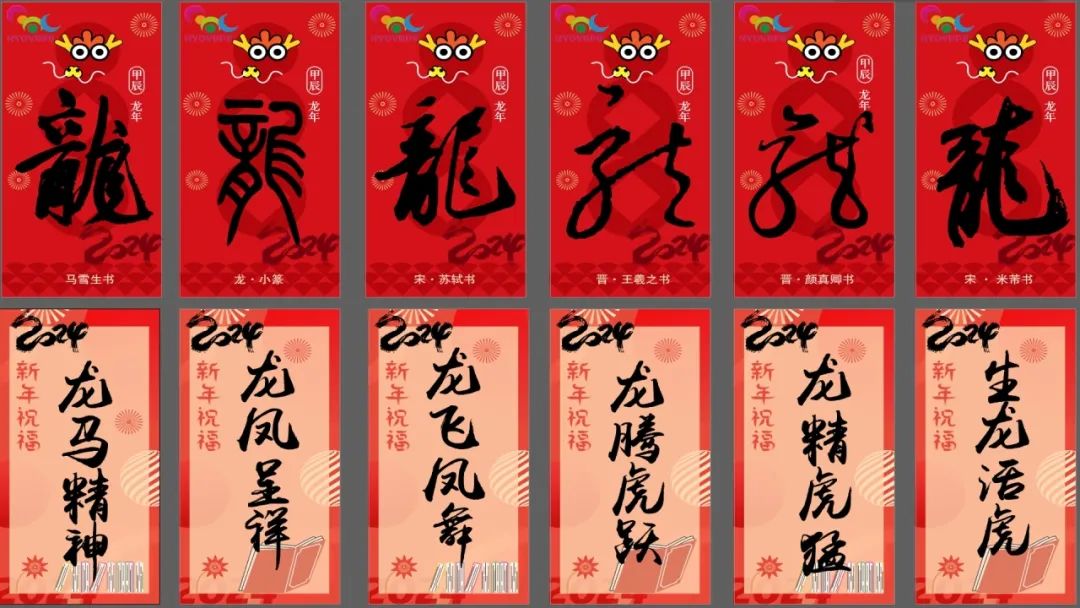 甲辰
龙年
龍
2024
马雪生书
甲辰
龙年
龍
2024
龙·小篆
甲辰
龙年
龍
2024
宋·苏轼书
甲辰
龙年
龍
2024
晋·王羲之书
甲辰
龙年
龍
2024
晋·颜真卿书
甲辰
龙年
龍
2024
宋·米芾书
2024
新年祝福
龙马精神
2024
2024
新年祝福
龙凤呈祥
2024
2024
新年祝福
龙飞凤舞
2024
2024
新年祝福
龙腾虎跃
2024
2024
新年祝福
龙精虎猛
2024
2024
新年祝福
生龙活虎
2024